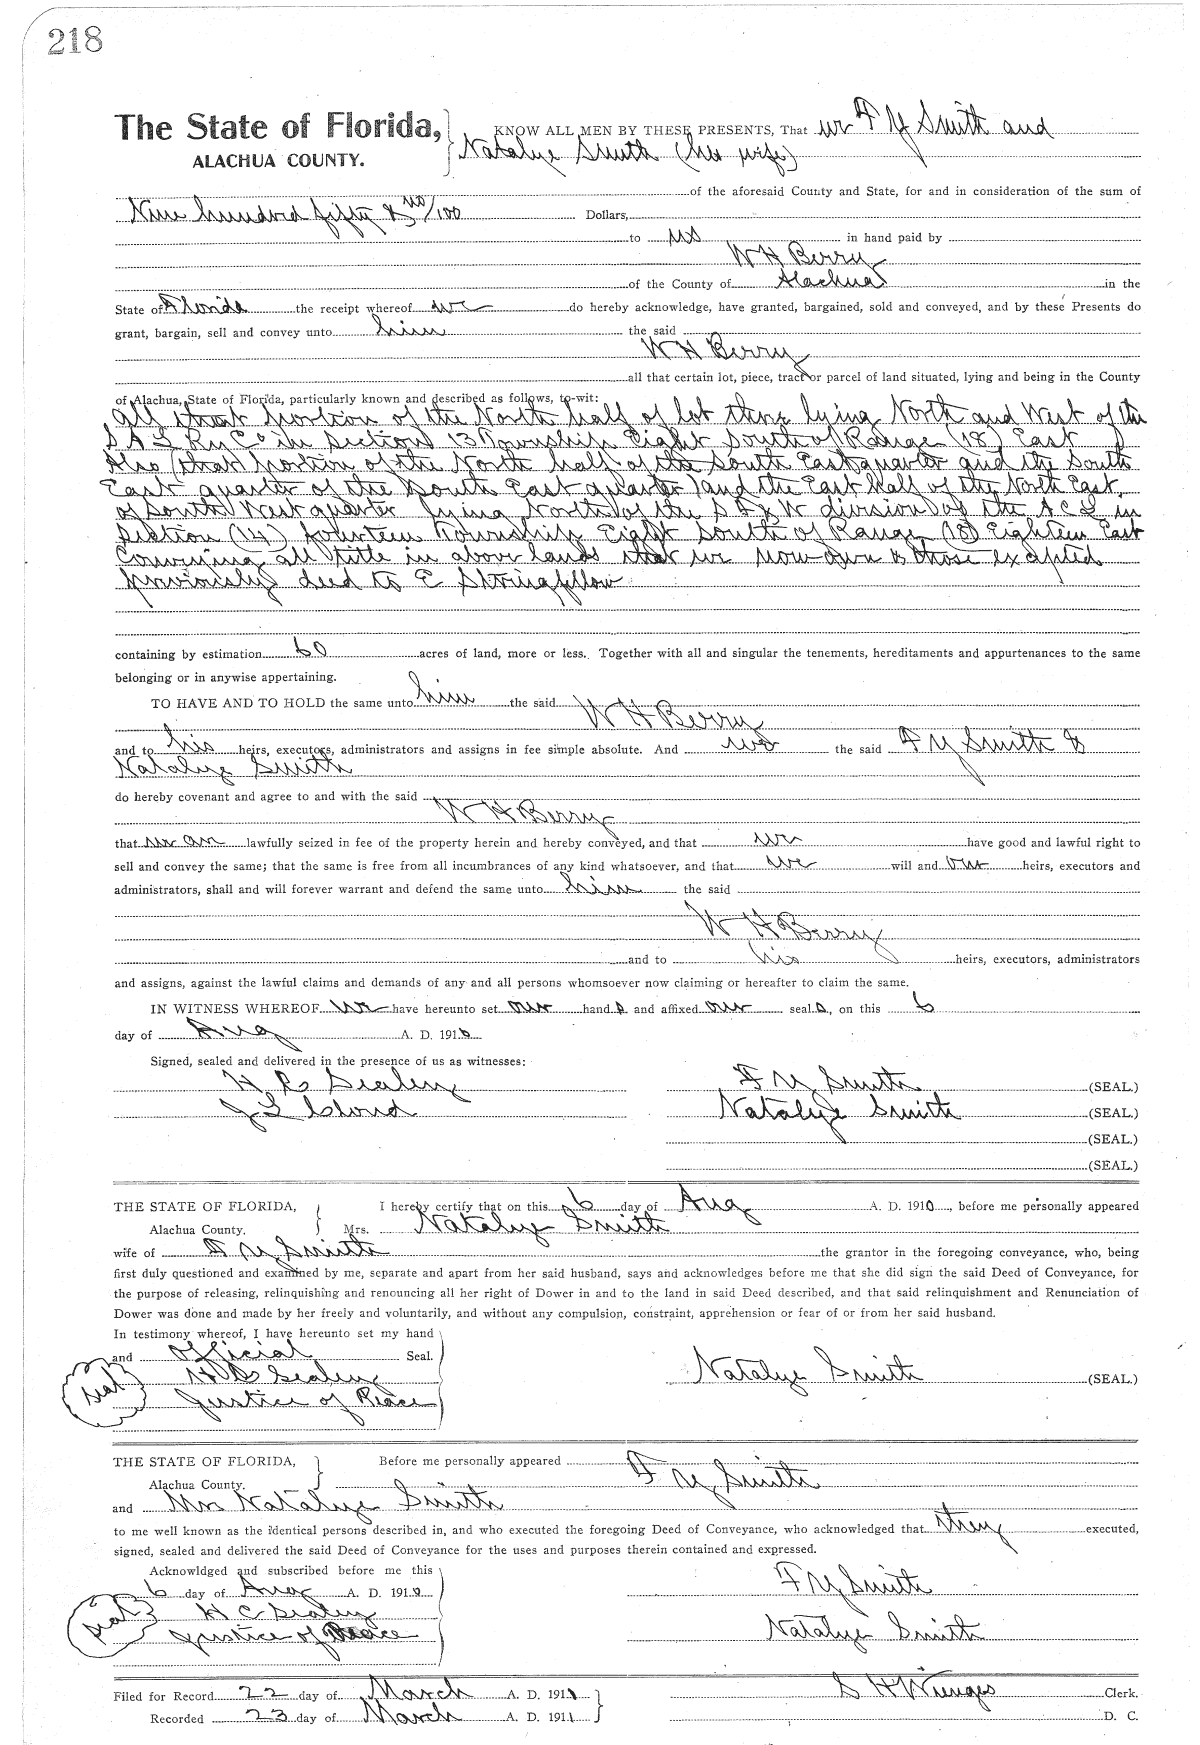 218
The State of Florida, KNOW ALL MEN BY THESE PRESENTS, That we F Y Smith and
ALACHUA COUNTY. Natalye Smith (his wife)
of the aforesaid County and State, for and in consideration of the sum of
Nine hundred fifty & no/100 Dollars,
to us in hand paid by
W H Berry
of the County of Alachua in the
State of Florida the receipt whereof we do hereby acknowledge, have granted, bargained, sold and conveyed, and by these Presents do
grant, bargain, sell and convey unto him the said
W H Berry
all that certain lot, piece, tract or parcel of land situated, lying and being in the County
of Alachua, State of Florida, particularly known and described as follows, to-wit:
All that portion of the North half of lot three lying North and West of the
S A L Ry Co in Section 13 Township Eight South of Range (18) East
Also (that) portion of the North half of the South East quarter and the South
East quarter of the South East quarter) and the East half of the North East
of South West quarter lying North of the S F & W division of the A C L in
Section (14) fourteen Township Eight South of Range (18) Eighteen East
Conveying all title in above lands that we now own & those excepted
previously deed to E Stringfellow
containing by estimation 60 acres of land, more or less. Together with all and singular the tenements, hereditaments and appurtenances to the same
belonging or in anywise appertaining.
TO HAVE AND TO HOLD the same unto him the said W H Berry
and to his heirs, executors, administrators and assigns in fee simple absolute. And we the said F Y Smith &
Natalye Smith
do hereby covenant and agree to and with the said
W H Berry
that we are lawfully seized in fee of the property herein and hereby conveyed, and that we have good and lawful right to
sell and convey the same; that the same is free from all incumbrances of any kind whatsoever, and that we will and our heirs, executors and
administrators, shall and will forever warrant and defend the same unto him the said
W H Berry
and to his heirs, executors, administrators
and assigns, against the lawful claims and demands of any and all persons whomsoever now claiming or hereafter to claim the same.
IN WITNESS WHEREOF we have hereunto set our hand s and affixed our seal s, on this 6
day of Aug A. D. 1910
Signed, sealed and delivered in the presence of us as witnesses:
Sealey F Y Smith (SEAL.)
J L Cloud Natalye Smith (SEAL.)
(SEAL.)
(SEAL.)
THE STATE OF FLORIDA, I hereby certify that on this 6 day of Aug A. D. 1910, before me personally appeared
Alachua County. Mrs. Natalye Smith
wife of F Y Smith the grantor in the foregoing conveyance, who, being
first duly questioned and examined by me, separate and apart from her said husband, says and acknowledges before me that she did sign the said Deed of Conveyance, for
the purpose of releasing, relinquishing and renouncing all her right of Dower in and to the land in said Deed described, and that said relinquishment and Renunciation of
Dower was done and made by her freely and voluntarily, and without any compulsion, constraint, apprehension or fear of or from her said husband.
In testimony whereof, I have hereunto set my hand
and official Seal.
seal Sealey Natalye Smith (SEAL.)
Justice of Peace
THE STATE OF FLORIDA, Before me personally appeared F Y Smith
Alachua County.
and Mrs Natalye Smith
to me well known as the identical persons described in, and who executed the foregoing Deed of Conveyance, who acknowledged that they executed,
signed, sealed and delivered the said Deed of Conveyance for the uses and purposes therein contained and expressed.
Acknowldged and subscribed before me this
6 day of Aug A. D. 1910 F Y Smith
seal H C Sealey
Justice of Peace Natalye Smith
Filed for Record 22 day of March A. D. 1911 S H Wienges Clerk.
Recorded 23 day of March A. D. 1911 D. C.